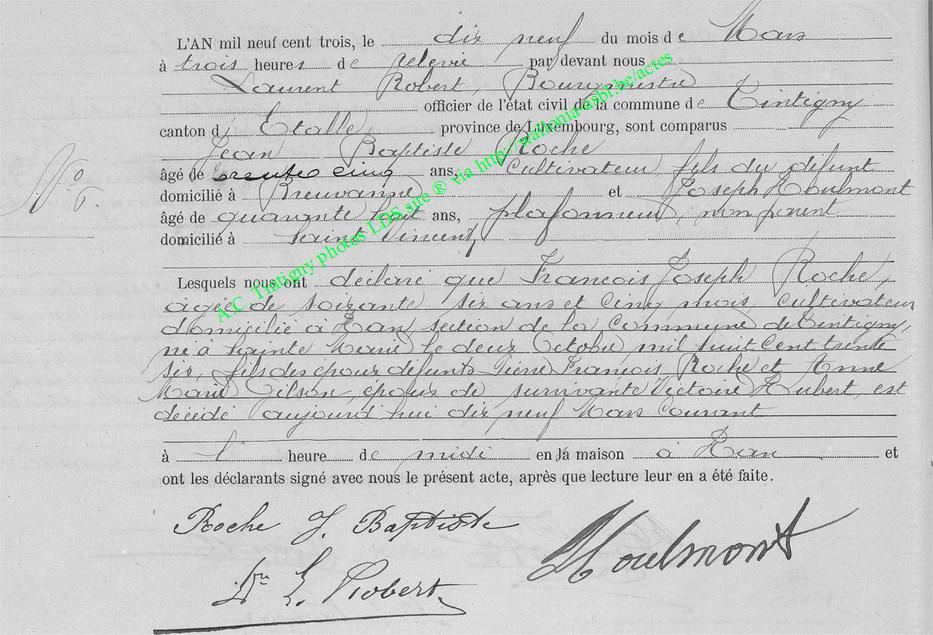 L'AN mil neuf cent trois, le dix neuf du mois de Mars
à trois heures de relevée par devant nous
Laurent Robert, Bourgmestre
officier de l'état civil de la commune de Tintigny
canton d' Etalle, province de Luxembourg, sont comparus
Jean Baptiste Roche
âgé de trente cinq ans, Cultivateur fils du défunt
domicilié à Breuvanne et Joseph Houlmont
âgé de quarante huit ans, plafonneur, non parent
domicilié à Saint Vincent
N° 6.
Lesquels nous ont déclaré que François Joseph Roche,
agé de soixante six ans et cinq mois, cultivateur
domicilié à Han, section de la Commune de Tintigny,
né à Sainte Marie le deux Octobre mil huit cent trente
six, fils des époux défunts Pierre François Roche et Anne
Marie Gilson, époux de survivante Victoire Hubert, est
décédé aujourd'hui dix neuf Mars courant
à l' heure de midi en la maison à Han et
ont les déclarants signé avec nous le présent acte, après que lecture leur en a été faite.
Roche J. Baptiste
Houlmont
Dr L. Robert
A.C. Tintigny photos LDS site ® via http://wallonia-asbl.be/actes